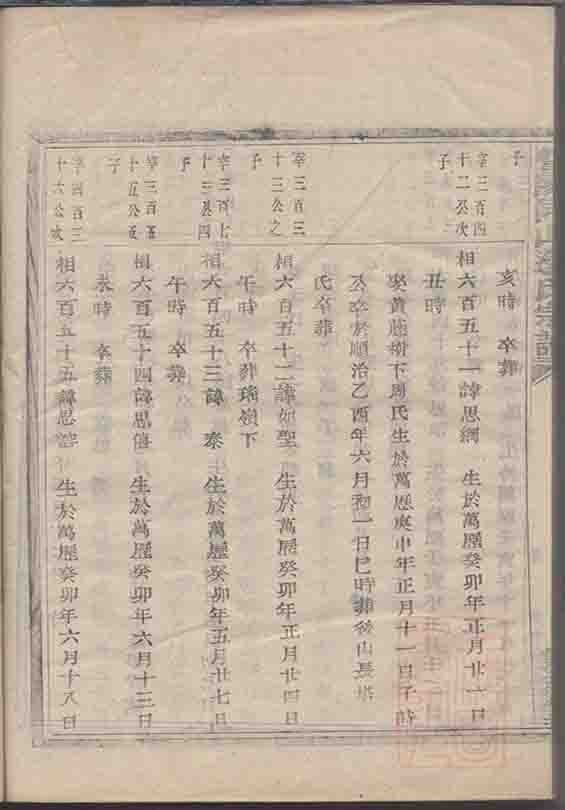 子
亥時 卒葬
宰三百四
十二公次
子
相六百五十一諱思綱 生於萬歷癸卯年正月廿六日
丑時
娶黃藤樹下周氏生於萬歷庚申年正月十一日子時
公卒於順治乙酉年六月初一日巳時葬後山長塔
氏卒葬
宰三百三
十三公之
子
相六百五十二諱如聖 生於萬歷癸卯年正月廿四日
午時 卒葬瑞嶺下
宰三百七
十三公四
子
相六百五十三諱 泰 生於萬歷癸卯年五月廿七日
午時 卒葬
宰三百五
十五公五
子
相六百五十四諱思僖 生於萬歷癸卯年六月十三日
未時 卒葬
宰四百三
十六公次
相六百五十五諱思 生於萬歷癸卯年六月十八日